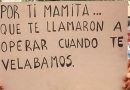 POR TI MAMITA...
QUE TE LLAMARON A
OPERAR CUANDO TE
VELABAMOS.